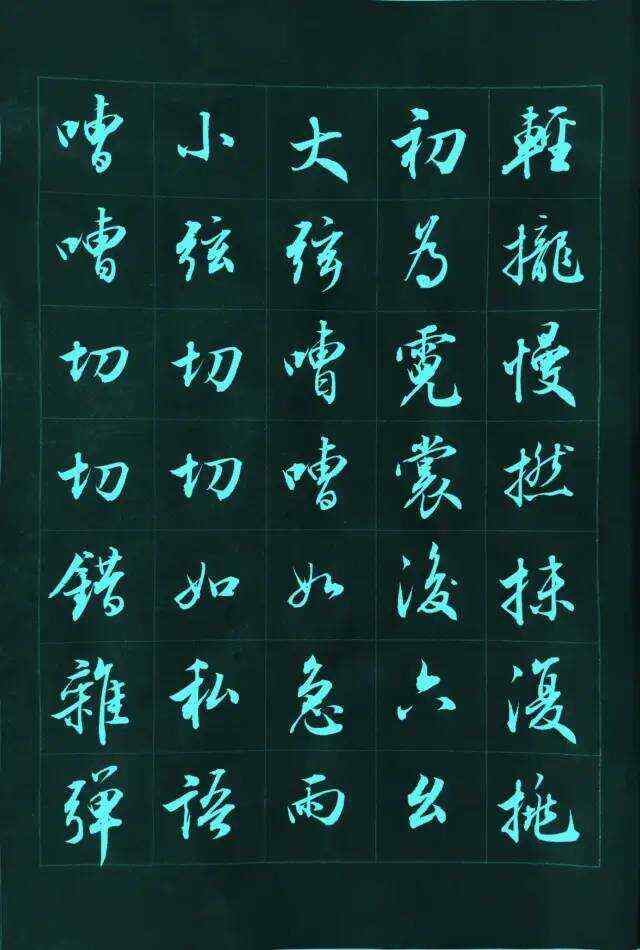 輕攏慢撚抹復挑
初為霓裳後六幺
大弦嘈嘈如急雨
小弦切切如私語
嘈嘈切切錯雜彈